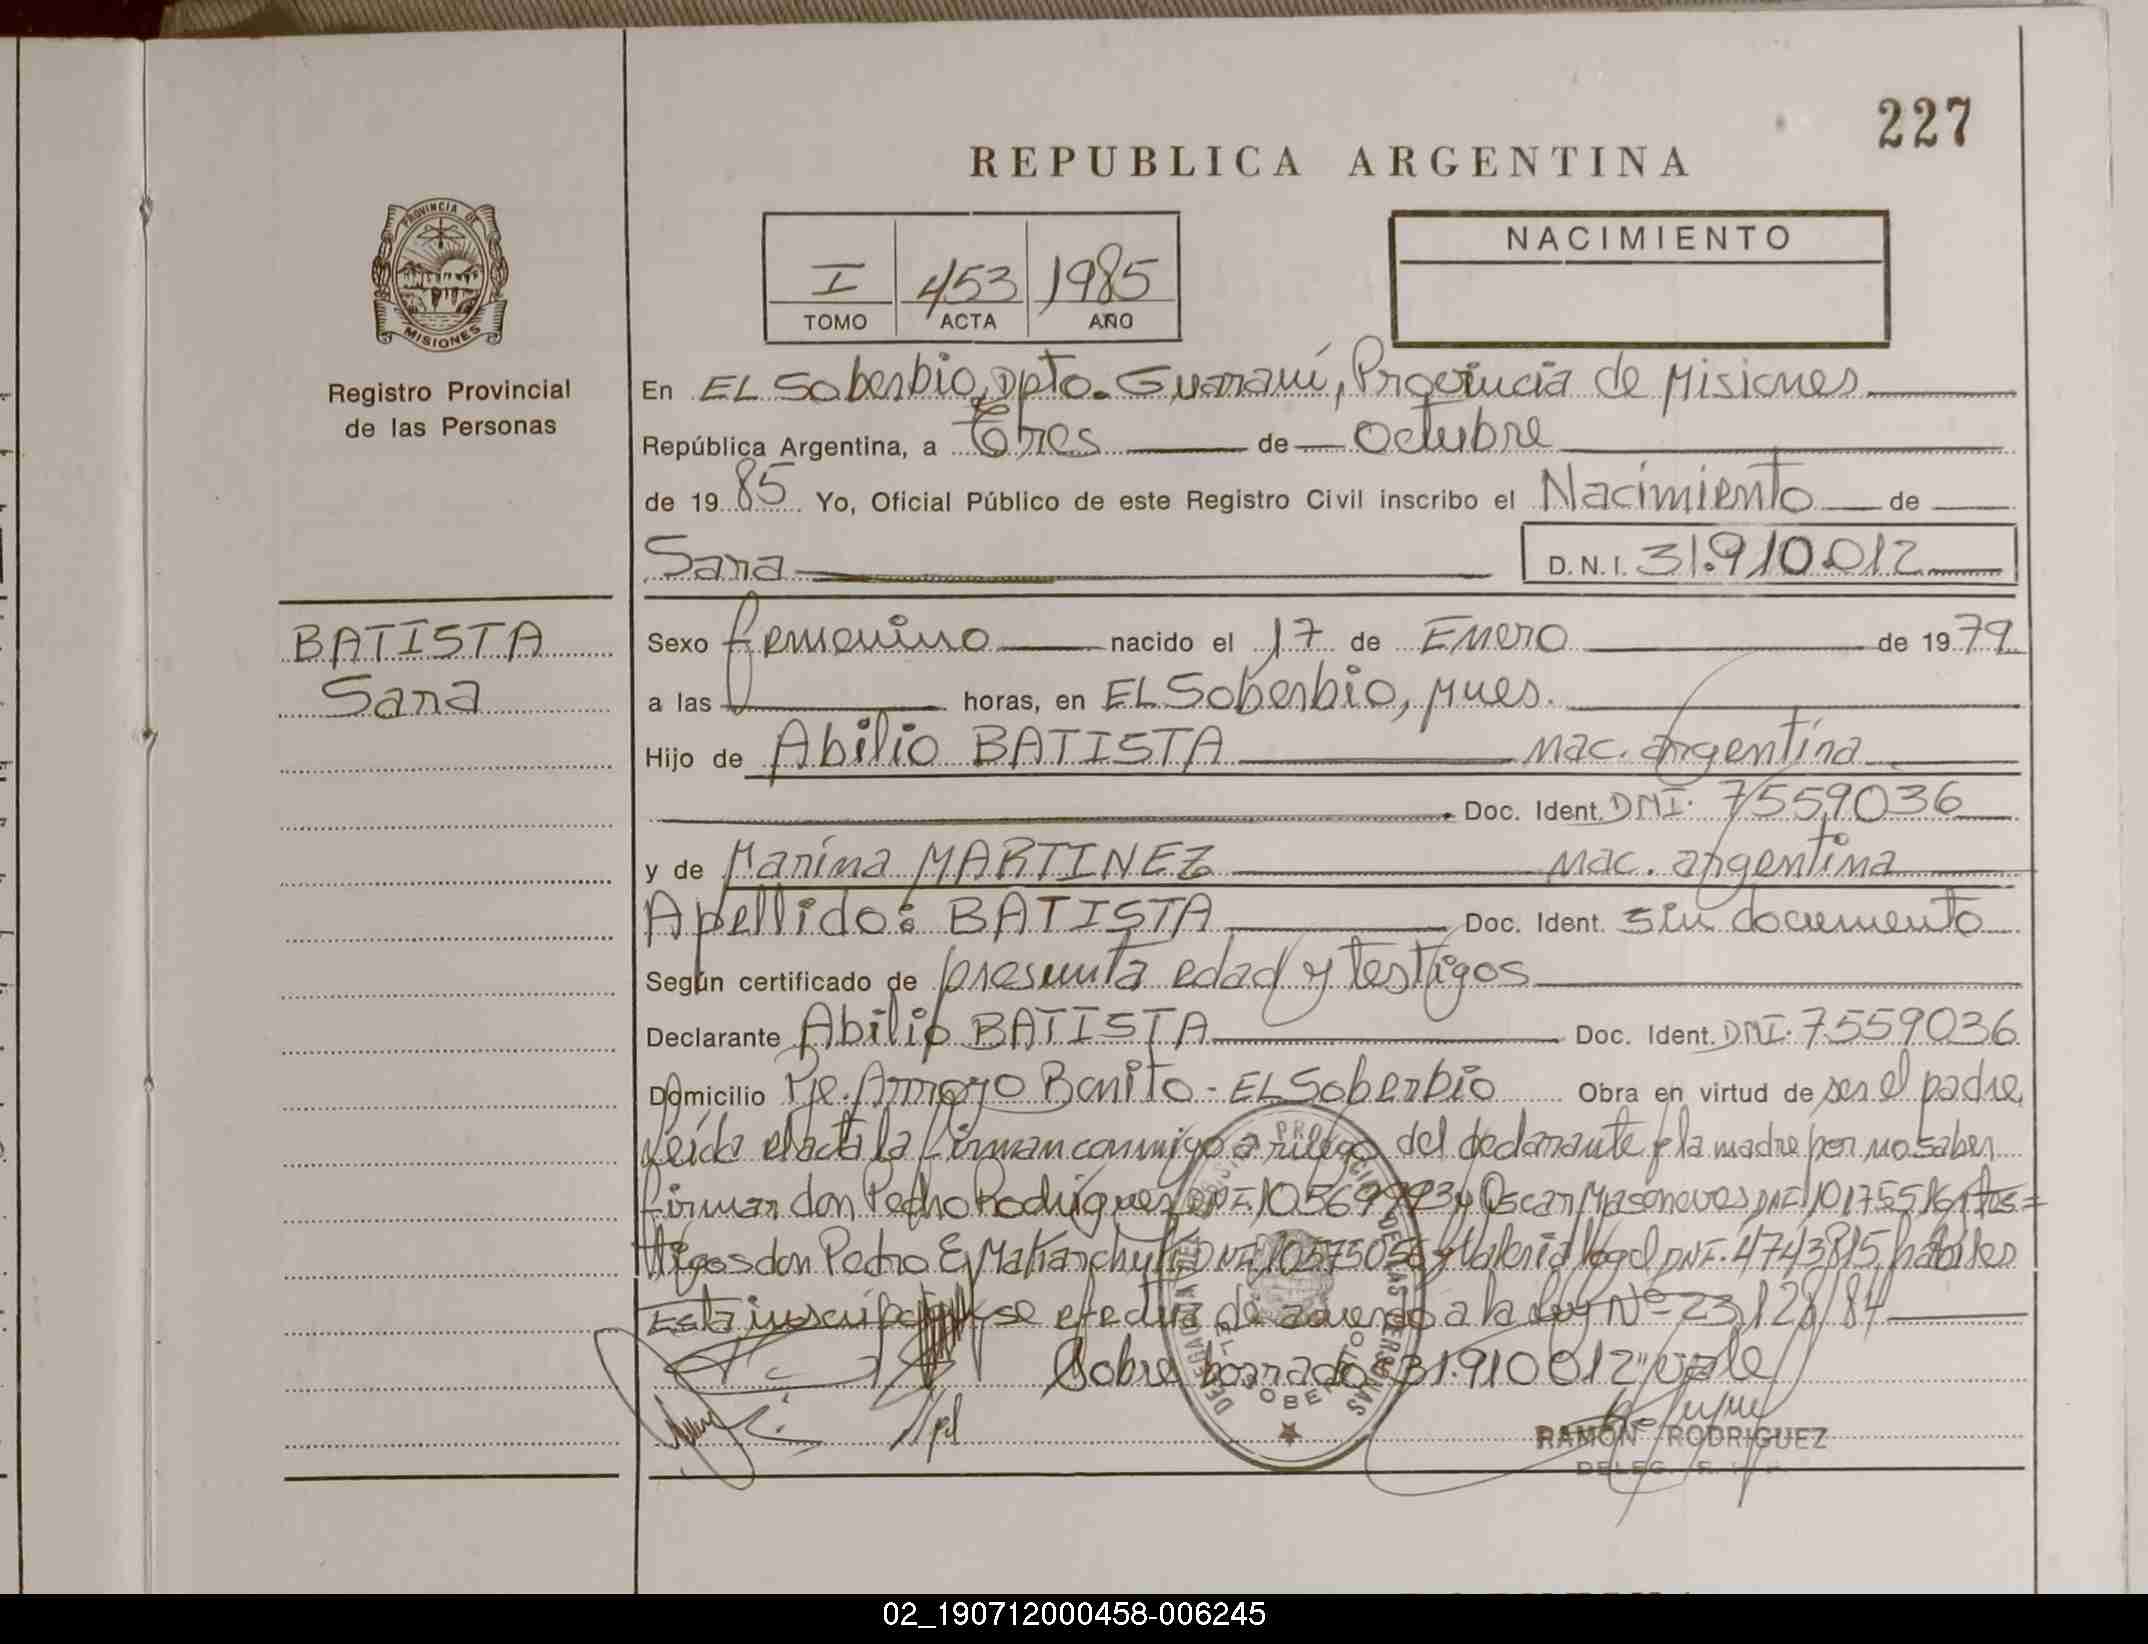 227
REPUBLICA ARGENTINA
PROVINCIA DE
MISIONES
Registro Provincial
de las Personas
I 453 1985
TOMO ACTA AÑO
NACIMIENTO
En EL Soberbio, Dpto. Guaraní, Provincia de Misiones
República Argentina, a Tres de Octubre
de 1985 Yo, Oficial Público de este Registro Civil inscribo el Nacimiento de
Sara D.N.I. 31.910.012
BATISTA
Sara
Sexo femenino nacido el 17 de Enero de 1979
a las horas, en EL Soberbio, Mnes.
Hijo de Abilio BATISTA nac. argentina
Doc. Ident. DNI. 7559036
y de Marina MARTINEZ nac. argentina
Apellido: BATISTA Doc. Ident. sin documento
Según certificado de presunta edad y testigos
Declarante Abilio BATISTA Doc. Ident. DNI. 7559036
Domicilio Pje. Arroyo Bonito - EL Soberbio Obra en virtud de ser el padre
leída el acta la firman conmigo a ruego del declarante y la madre por no saber
firmar don Pedro Rodriguez DNI. y Oscar DNI. tes=
tigos don Pedro E. DNI. y Valeria DNI. 4743815, hábiles
Esta inscripción se efectúa de acuerdo a la ley Nº 23.128/84
Sobre borrado "31.910.012" vale
DELEGACIÓN DE LAS PERSONAS
EL SOBERBIO
RAMON RODRIGUEZ
DELEG.
02_190712000458-006245